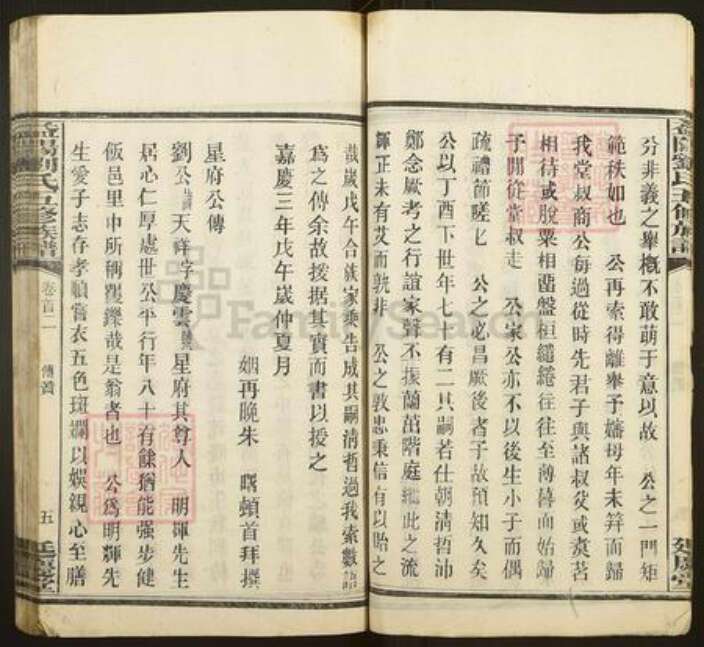 益陽劉氏五修族譜
分非義之舉概不敢萌于意以故　公之一門矩
範秩如也　公再索得離舉予嬸母年未笄而歸
我堂叔商公每過從時先君子與諸叔父或煑茗
相待或脫粟相酬盤桓繾綣往往至薄暮而始歸
予閒從堂叔走　公家公亦不以後生小子而偶
疏禮節嗟乎　公之必昌厥後者予故預知久矣
公以丁酉下世年七十有二其嗣若仕朝清哲沛
鄭念厥考之行誼家聲不振蘭茁階庭繼此之流
輝正未有艾而孰非　公之敦忠秉信有以貽之
哉歲戊午合族家乘告成其嗣清哲過我索數言
爲之傳余故援据其實而書以授之
嘉慶三年戊午歲仲夏月
姻再晚朱　曙頓首拜撰
星府公傳
劉公諱天祥字慶雲號星府其尊人　明輝先生
居心仁厚處世公平行年八十有餘猶能强步健
飯邑里中所稱矍鑠哉是翁者也　公爲明輝先
生愛子志存孝順嘗衣五色斑斕以娛親心至膳
益陽劉氏五修族譜
卷首二
傳贊
五
FamilySearch